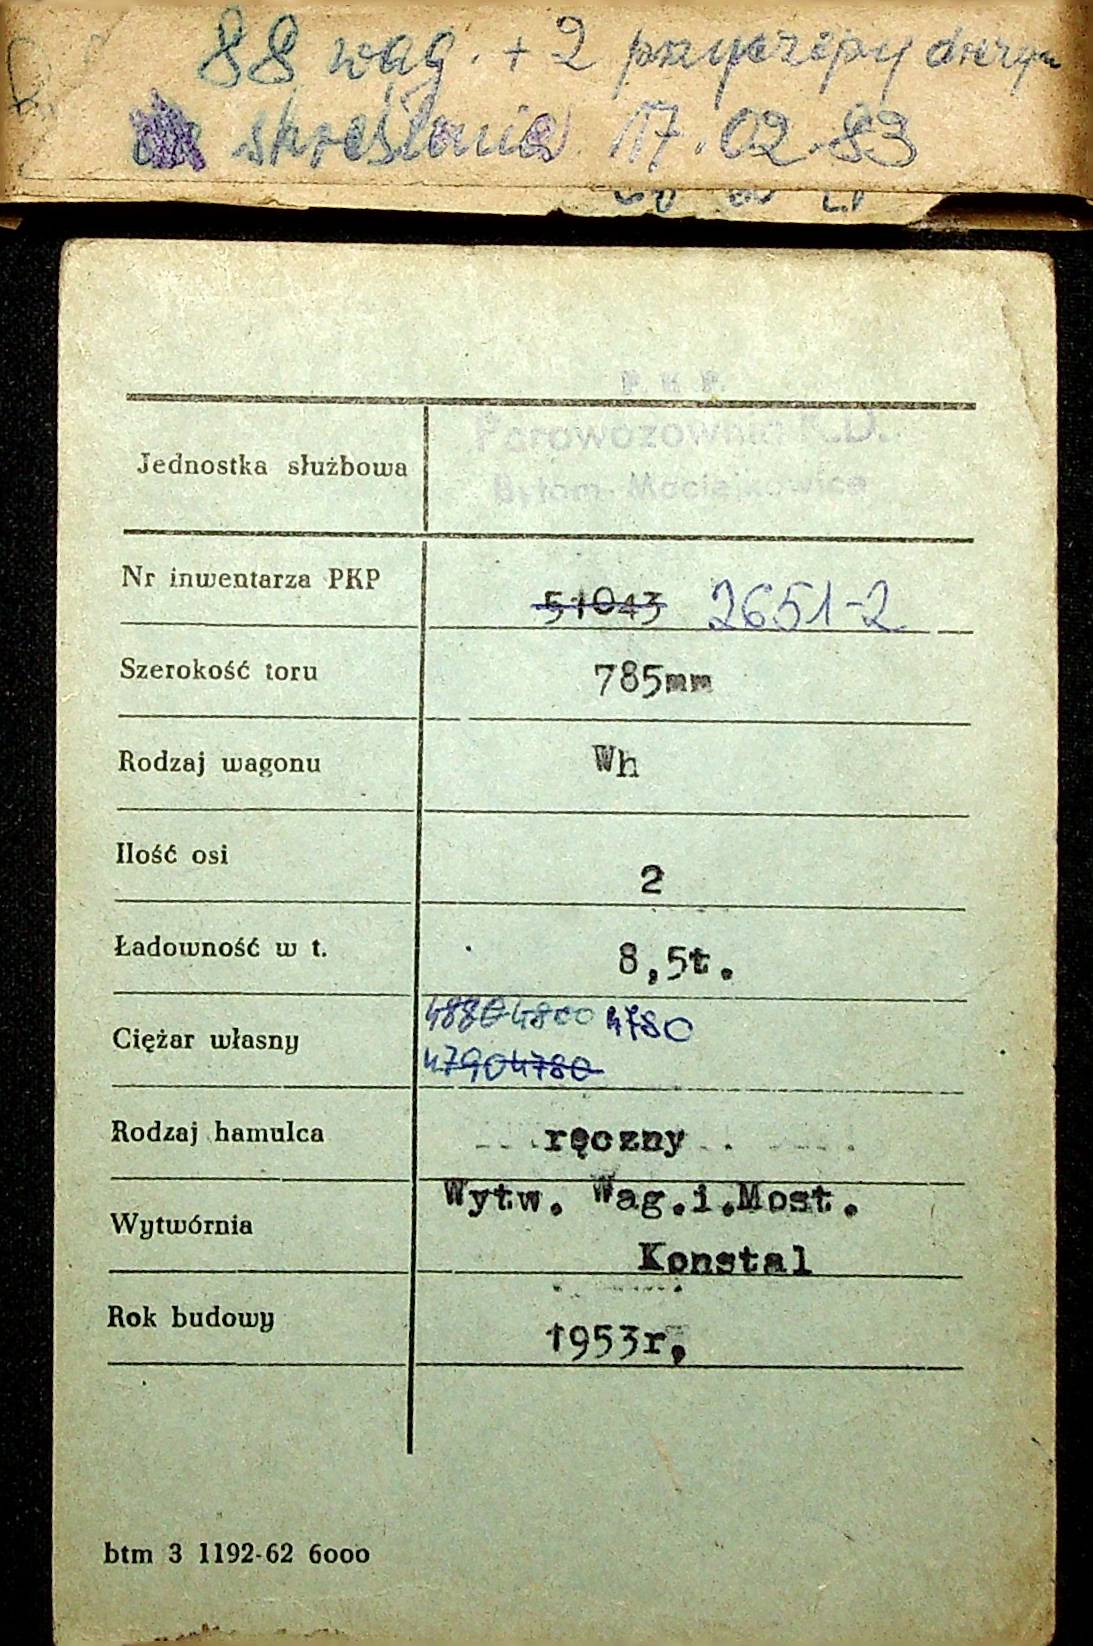 88 wag. + 2 przyczepy drezyn
skreślenia 17.02.83
P. K. P.
Parowozownia K.D.
Bytom-Maciejkowice
Jednostka służbowa
Nr inwentarza PKP 51043 2651-2
Szerokość toru 785mm
Rodzaj wagonu Wh
Ilość osi 2
Ładowność w t. 8,5t.
4880 4800 4780
Ciężar własny
4790 4780
Rodzaj hamulca ręczny
Wytw. Wag.i.Most.
Wytwórnia
Konstal
Rok budowy 1953r.
btm 3 1192-62 6000